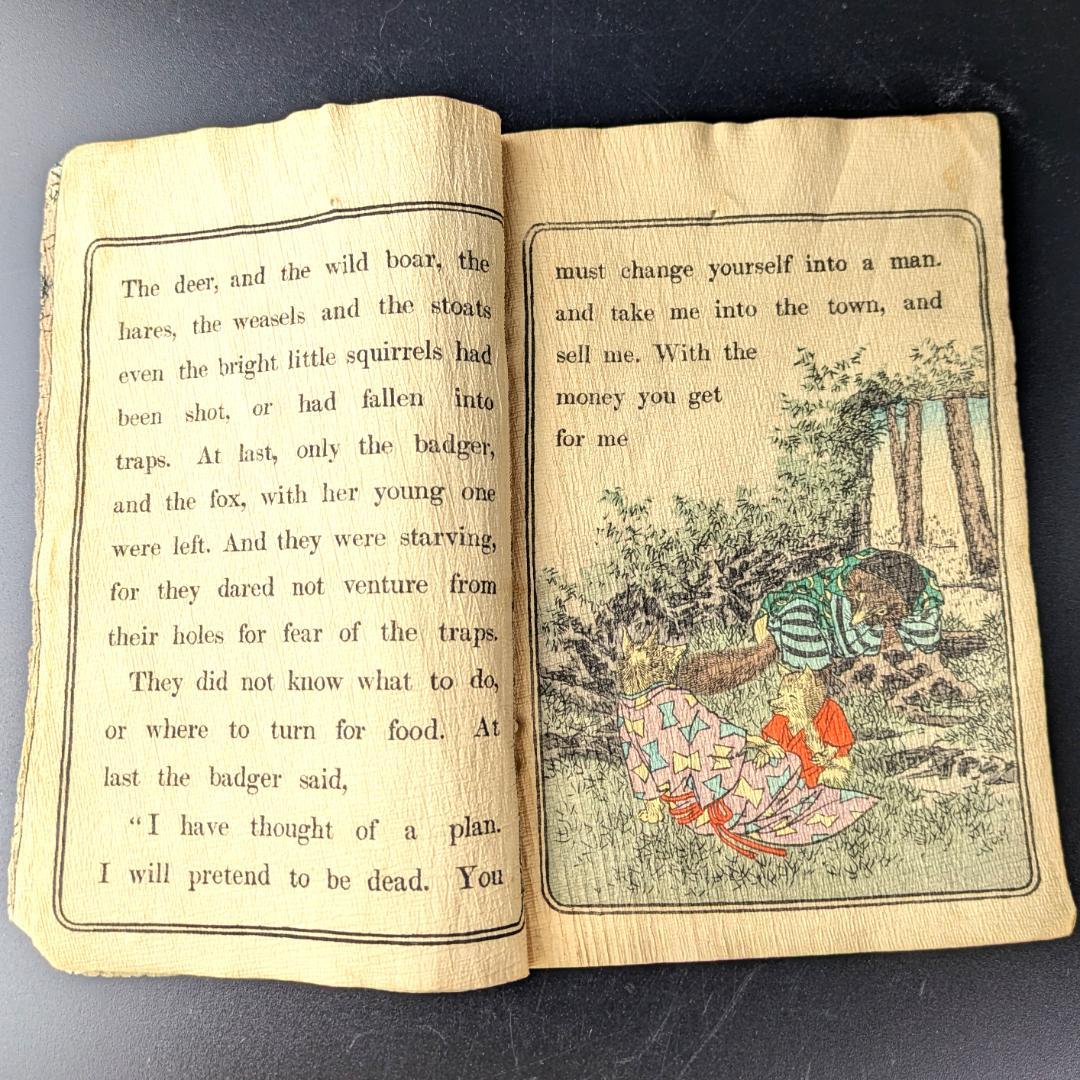 The deer, and the wild boar, the
hares, the weasels and the stoats
even the bright little squirrels had
been shot, or had fallen into
traps. At last, only the badger,
and the fox, with her young one
were left. And they were starving,
for they dared not venture from
their holes for fear of the traps.
They did not know what to do,
or where to turn for food. At
last the badger said,
"I have thought of a plan.
I will pretend to be dead. You
must change yourself into a man.
and take me into the town, and
sell me. With the
money you get
for me